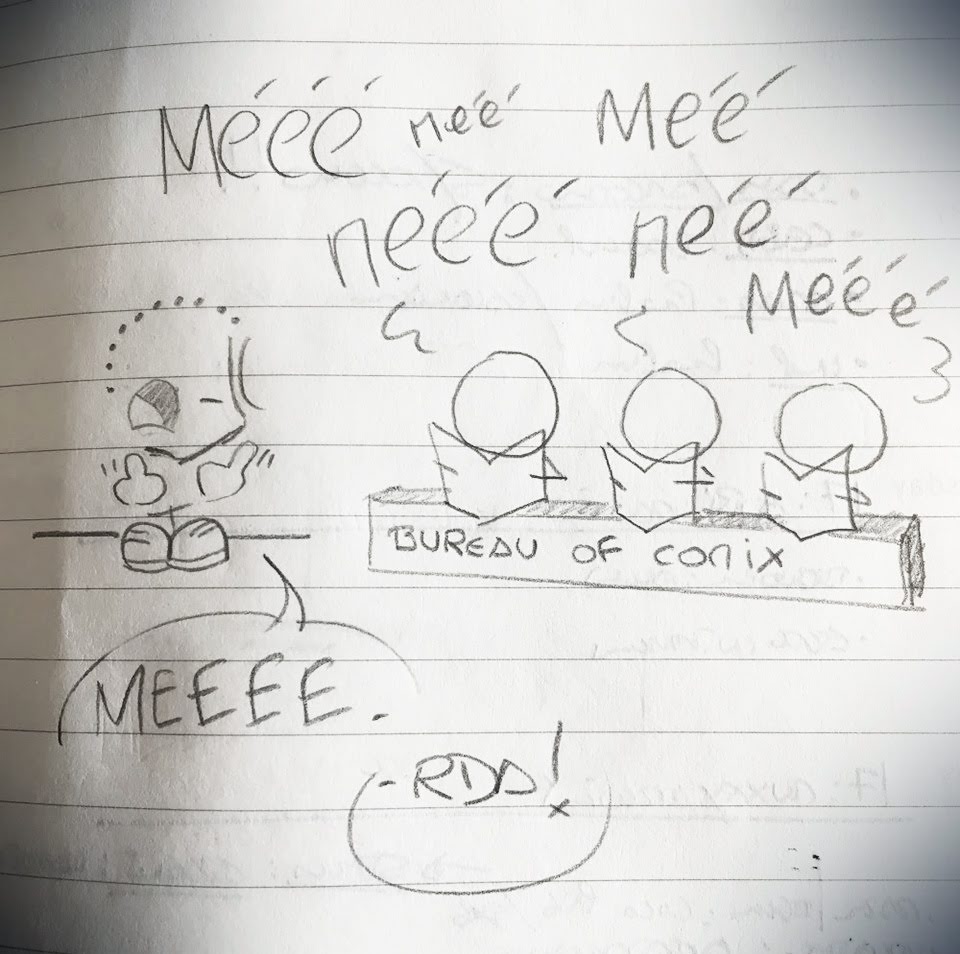 Mééé méé Méé
nééé néé
Mééé
BUREAU OF COMIX
MEEEE.
-RDD!